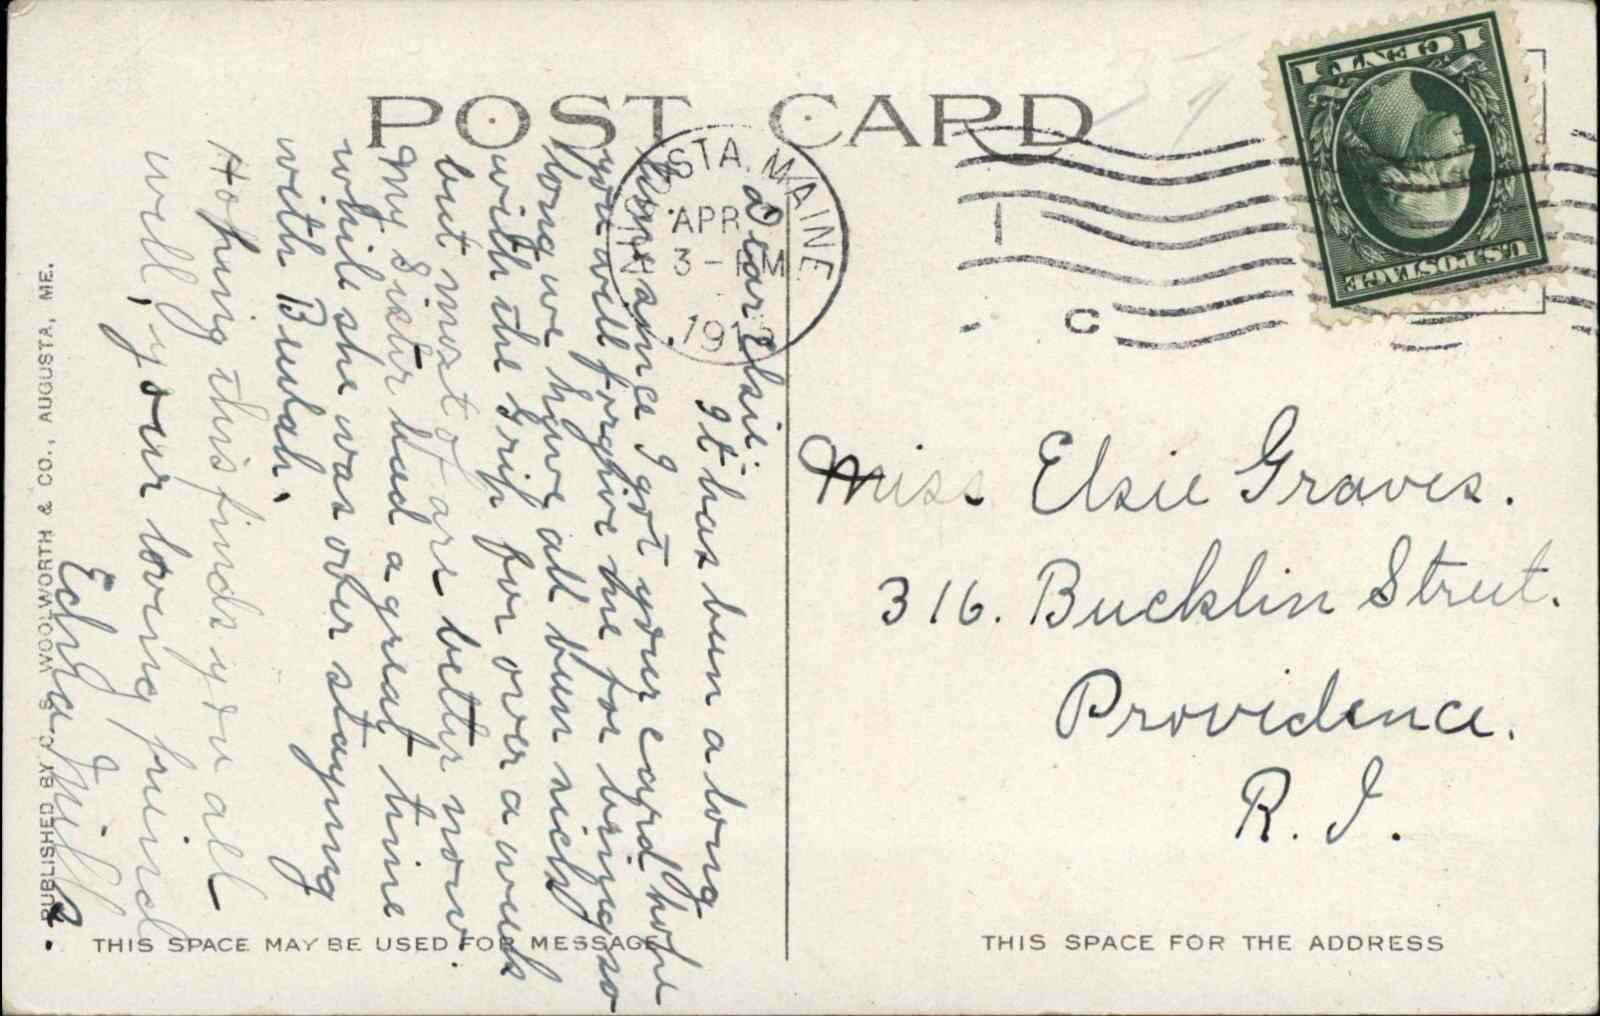 POST CARD
STA. MAINE
APR
3 - PM
191
C
U.S. POSTAGE
1 CENT 1
Dear Elsie:-
It has been a long
time since I got your card hope
you will forgive me for being so
long we have all been sick
with the Grip for over a week
but most of are better now.
My Sister had a great time
while she was over staying
with Bulah.
Hoping this finds you all
well, your loving friend
Edna Mills
Miss Elsie Graves.
316. Bucklin Street.
Providence.
R. I.
PUBLISHED BY C. S. WOOLWORTH & CO., AUGUSTA, ME.
THIS SPACE MAY BE USED FOR MESSAGE
THIS SPACE FOR THE ADDRESS